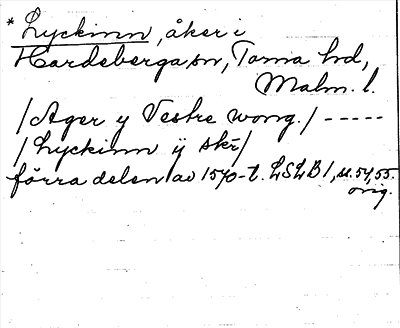 * Lyckinn, åker i
Hardeberga sn, Torna hd,
Malm. l.
/Ager y Vestre wong./ -----
/Lyckinn ÿ skr/
förra delen av 1570-t. LSLB1, s. 54, 55.
orig.